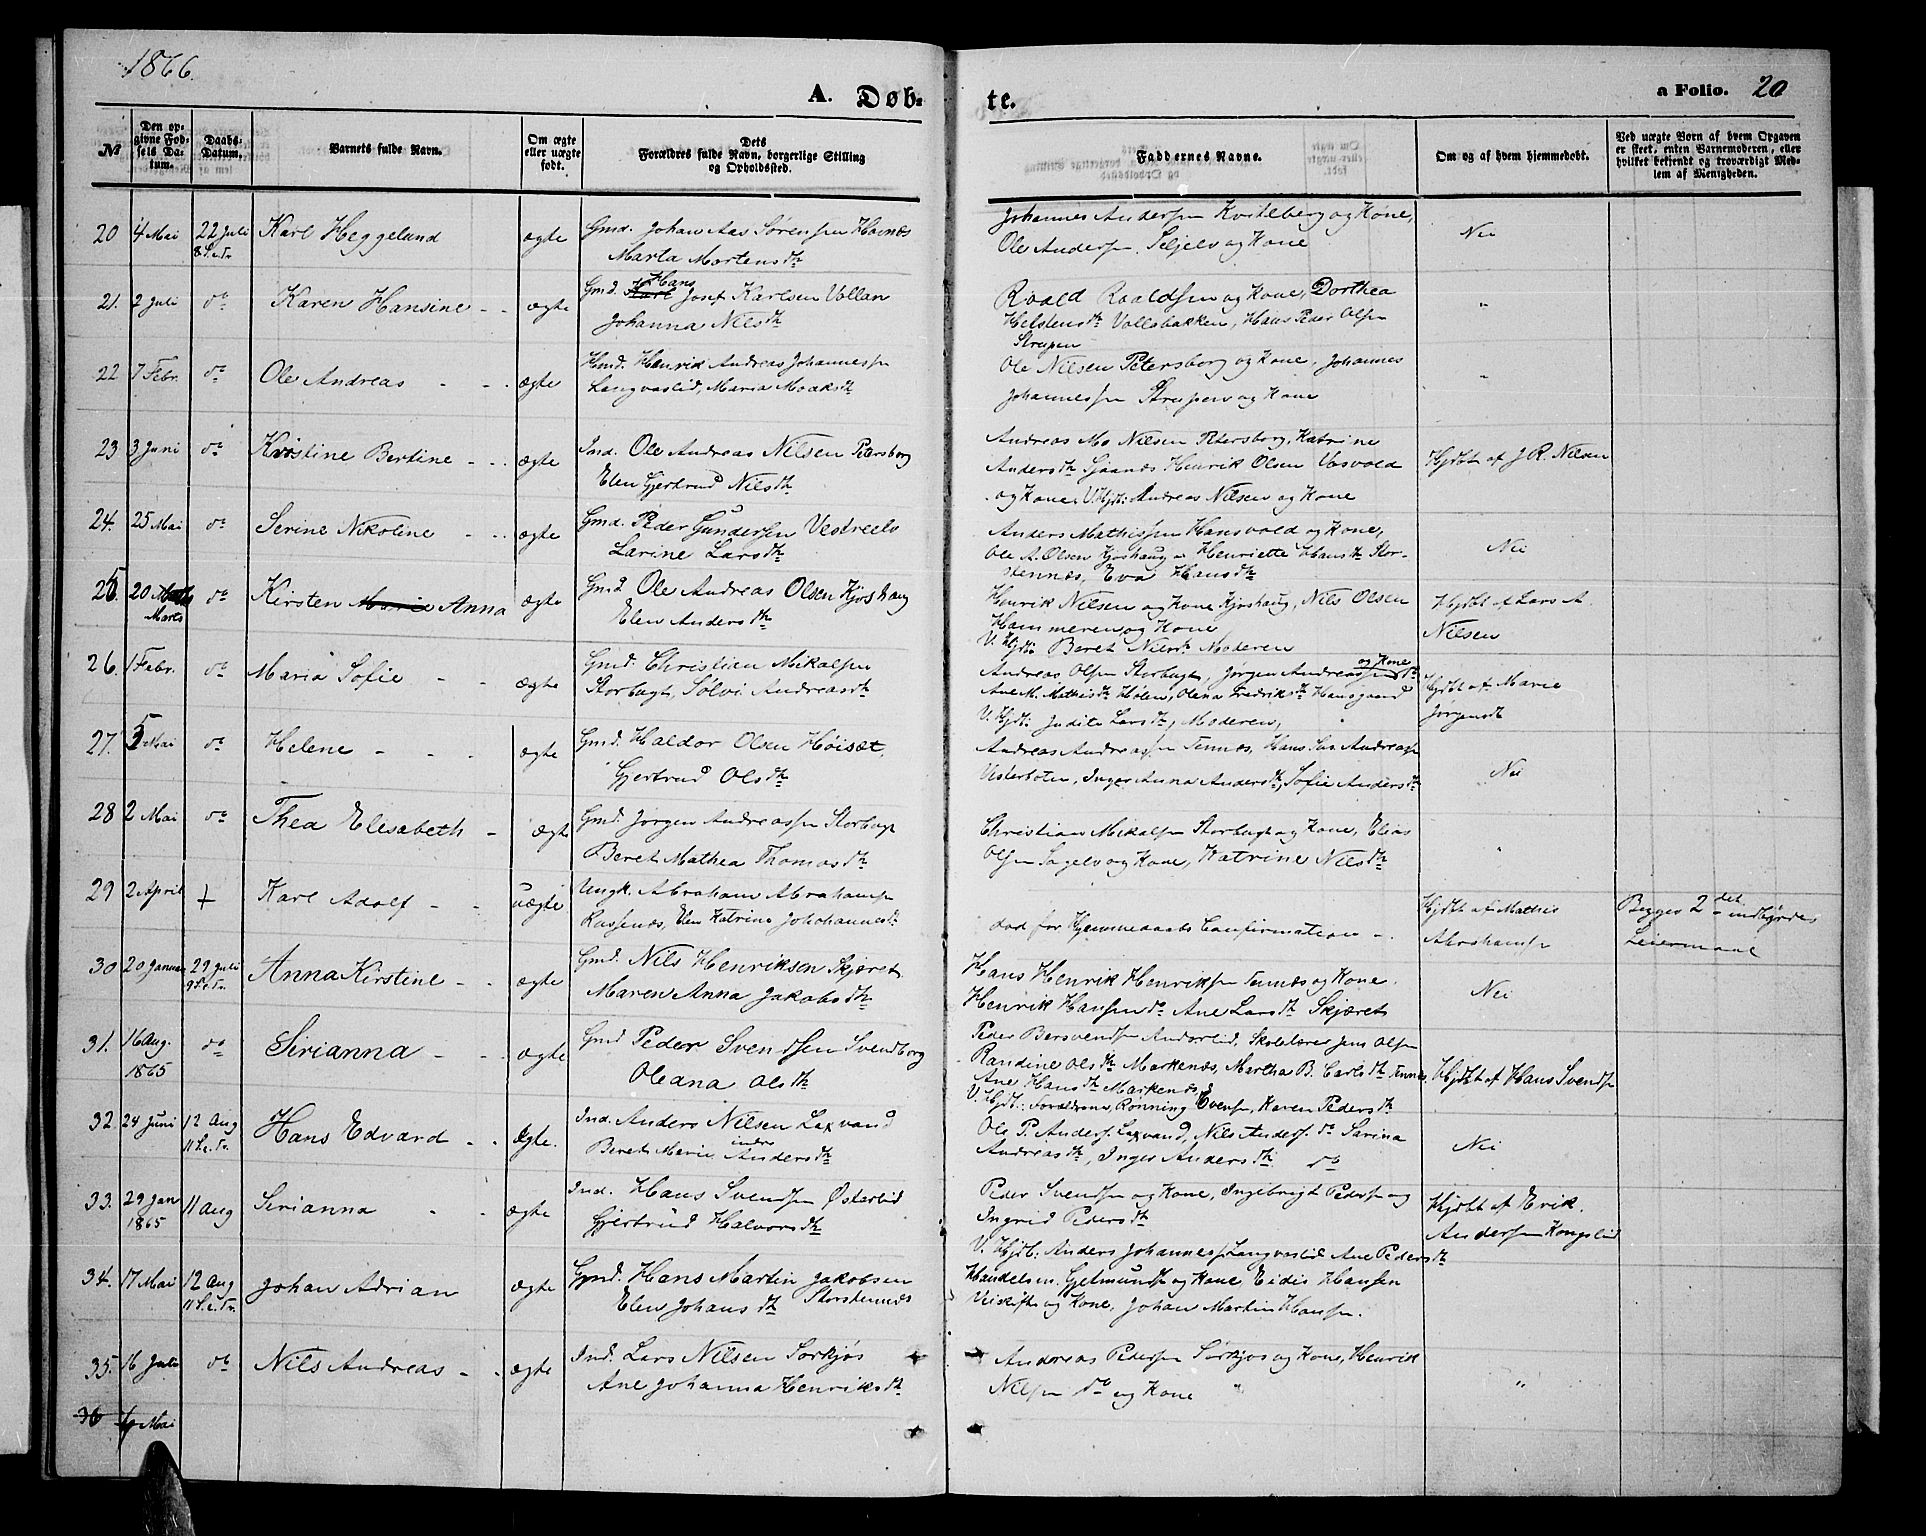 1866.
A. Døb-
te.
a Folio. 20
№
Den op-
givne Fød-
sels Da-
tum.
Daabs-
Datum.
Barnets fulde Navn.
Om ægte
eller uægte
født.
Dets
Forældres fulde Navn, borgerlige Stilling
og Opholdssted.
Faddernes Navne.
Om og af hvem hjemmedøbt.
Ved uægte Børn af hvem Opgaven
er skeet, enten Barnemoderen, eller
hvilket bekjendt og troværdigt Med-
lem af Menigheden.
20 4 Mai 22 Juli Karl Heggelund ægte Gmd. Johan Aas Sørensen Havnæs
8 S. e. Tr. Marta Mortensdtr
Johannes Andersen Kvitberg og Kone,
Ole Andersen Seljelv og Kone
Nei
21. 2 Juli do Karen Hansine - - ægte Gmd. Karl Hans Josef Karlsen Vollan
Johanna Nilsdtr
Roald Roaldsen og Kone, Dorthea
Helstensdtr Vollsbakken, Hans Peder Olsen
Strupen
"
22 7 Febr. do Ole Andreas - - ægte Hmd. Henrik Andreas Johannessen
Langvaslid, Maria Moaksdtr
Ole Nilsen Petersborg og Kone, Johannes
Johannessen Strupen og Kone
"
23 3 Juni do Kristine Bertine - - ægte Ind. Ole Andreas Nilsen Petersborg
Elen Gjertrud Nilsdtr
Andreas Mo Nilsen Petersborg, Katrine
Andersdtr Sjaanæs Henrik Olsen Vasvold
og Kone. V. Hjdt: Andreas Nilsen og Kone
Hjdbt af J. R. Nilsen
24. 25 Mai do Serine Nikoline - - ægte Gmd. Peder Gundersen Vestreelv
Larine Larsdtr
Anders Mathissen Hansvold og Kone,
Ole A. Olsen Kjoshaug, Henriette Hansdtr Stor-
stennæs, Eva Hansdtr
Nei
25. 20 Marts do Kirsten Marie Anna ægte Gmd Ole Andreas Olsen Kjoshaug
Elen Andersdtr
Henrik Nilsen og Kone Kjoshaug, Nils Olsen
Hammeren og Kone
V. Hjdt: Beret Nilsdtr Moderen
Hjdbt af Lars A.
Nilsen
26. 1 Febr. do Maria Sofie - - ægte Gmd. Christian Mikalsen
Storbugt, Sølvi Andreasdtr
Andreas Olsen Storbugt, Jørgen Andreassen og Kone do
Ane M. Mathisdtr Holen, Olena Fredriksdtr Hansgaard
V. Hjdt: Judite Larsdtr, Moderen,
Hjdbt af Marie
Jørgensdt
27. 5 Mai do Helene - - - ægte Gmd. Haldor Olsen Høiset,
Gjertrud Olsdtr
Andreas Andreassen Tennæs, Hans Andreassen
Vesterbotn, Inger Anna Andersdtr, Sofie Andersdtr
Nei
28 2 Mai do Thea Elisabeth - ægte Gmd. Jørgen Andreassen Storbugt
Beret Mathea Thomasdtr
Christian Mikalsen Storbugt og Kone, Elias
Olsen Sagelv og Kone, Katrine Nilsdtr
"
29 2 April + Karl Adolf - - uægte Ungk. Abraham Abrahamsen
Rassenæs, Elen Katrine Johannesdtr
død før Hjemmedaabs Confirmation -.
Hjdbt af Mathis
Abrahamsen
Begges 2det indbyrdes
Leiermaal
30 20 Januar 29 Juli Anna Kirstine - - ægte Gmd. Nils Henriksen Skjæret
9 S. e. Tr. Maren Anna Jakobsdtr
Hans Henrik Henriksen Tennæs og Kone.
Henrik Hansen do Ane Larsdtr Skjæret
Nei
31. 16 Aug. do Sirianna - - ægte Gmd Peder Svendsen Svendborg
1865 Oleana Olsdtr
Peder Bersvendsen Andorlid, Skolelærer Jens Olsen
Randine Olsdtr Markenæs, Martha B. Carlsdtr Tennæs,
Ane Hansdtr Markenæs
V. Hjdt: Forældrene, Rønning Evensen, Karen Pedersdtr
Hjdbt af Hans Svendsen
32. 24 Juni 12 Aug Hans Edvard - - ægte. Ind. Anders Nilsen Laxvand
11 S. e. Tr. Beret Marie Andersdtr
Ole P. Anders. Laxvand, Nils Anders. do Sarina
Andreasdtr, Inger Andersdtr do
Nei
33. 29 Jan 11 Aug Sirianna - - ægte Ind. Hans Svendsen Østerlid
1865 Gjertrud Halvorsdtr
Peder Svendsen og Kone, Ingebrigt Pedersen og
Ingrid Pedersdtr
V. Hjdt. Anders Johannessen Langvaslid Ane Pedersdtr
Hjdbt af Erik
Andersen Kongslid
34. 17 Mai 12 Aug Johan Adrian ægte Gmd. Hans Martin Jakobsen
11 S. e. Tr. Elen Johansdtr Storstennæs
Handelsm. Gjetmundsen og Kone Eidis Hansen
og Kone, Johan Martin Hansen.
35. 16 Juli do Nils Andreas - - ægte Ind. Lars Nilsen Sørkjos
Ane Johanna Henriksdtr
Andreas Pedersen Sørkjos og Kone, Henrik
Nilsen do og Kone "
"
36 Mai